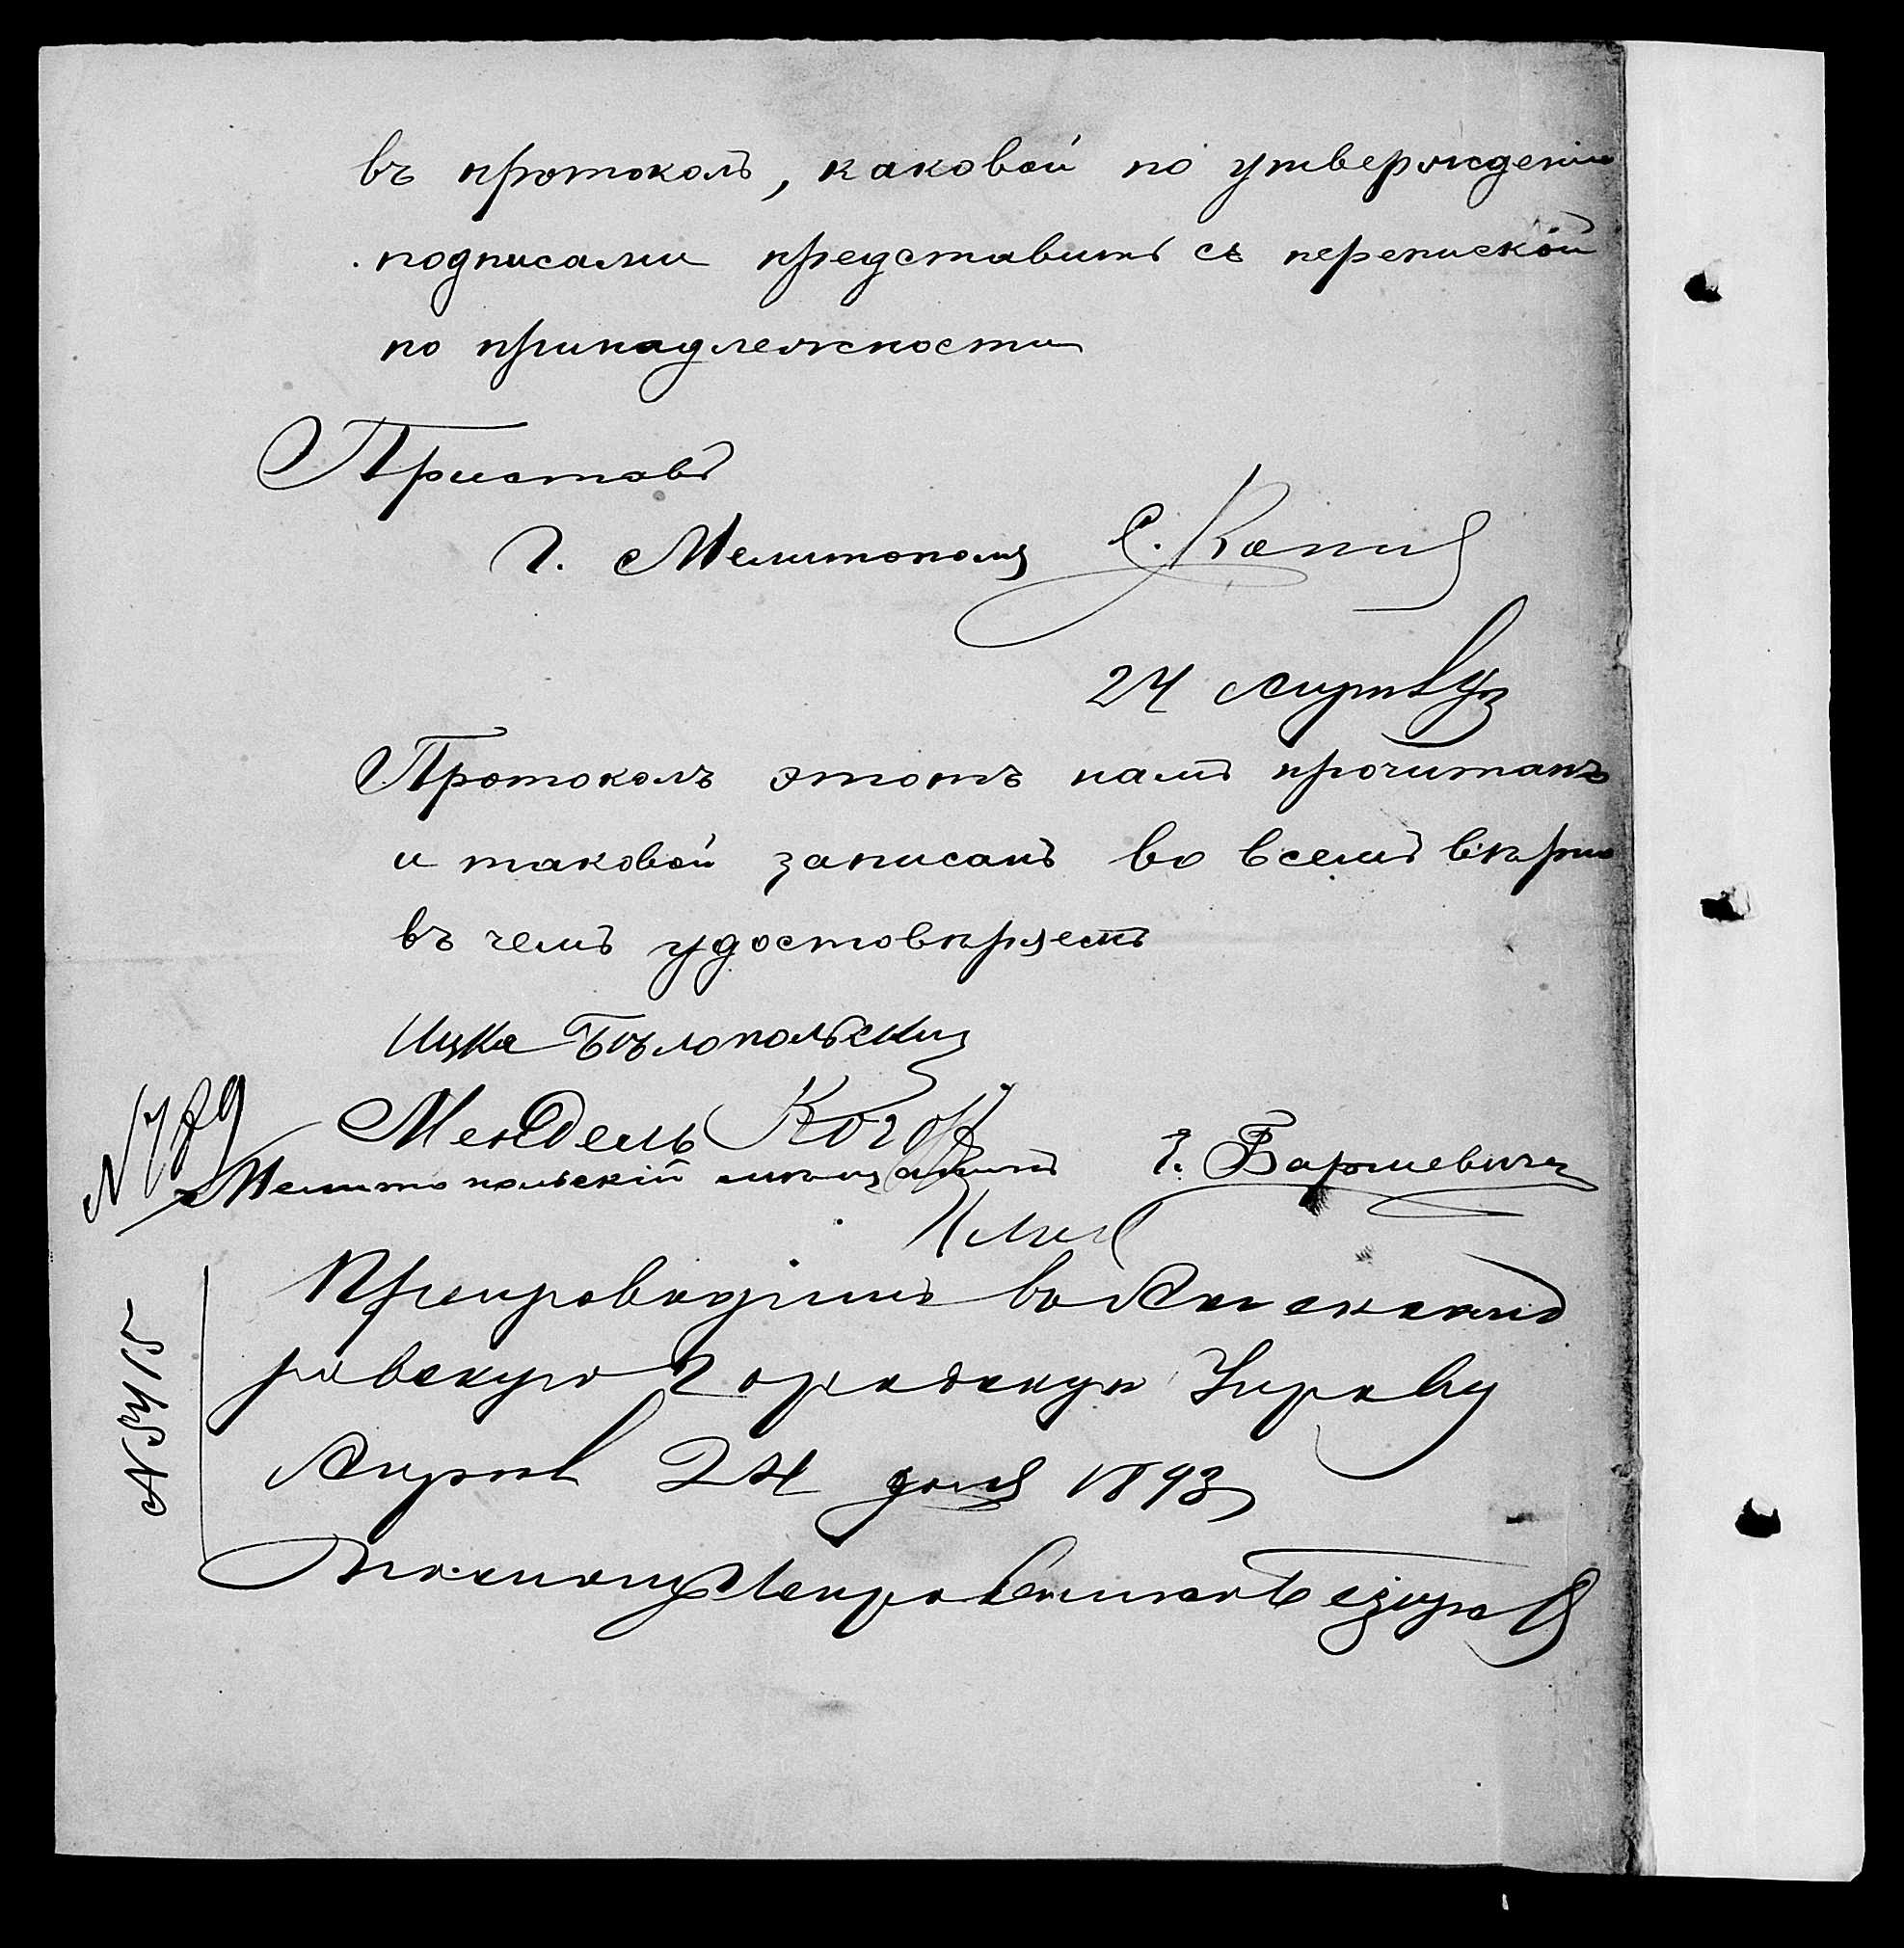 въ протоколъ, каковой по утвержденіи
подписами представить съ перепиской
по принадлежности
Приставъ
г. Мелитополя С.
24 Апрѣля
Протоколъ этотъ намъ прочитанъ
и таковой записанъ во всемъ вѣрно
въ чемъ удостовѣряемъ
Ицка Бѣлопольскій
Мендель Коган
Мелитопольскій мѣщанинъ
Препроводить въ Александ
ровскую Городскую Управу
Апрѣля 24 дня 1893